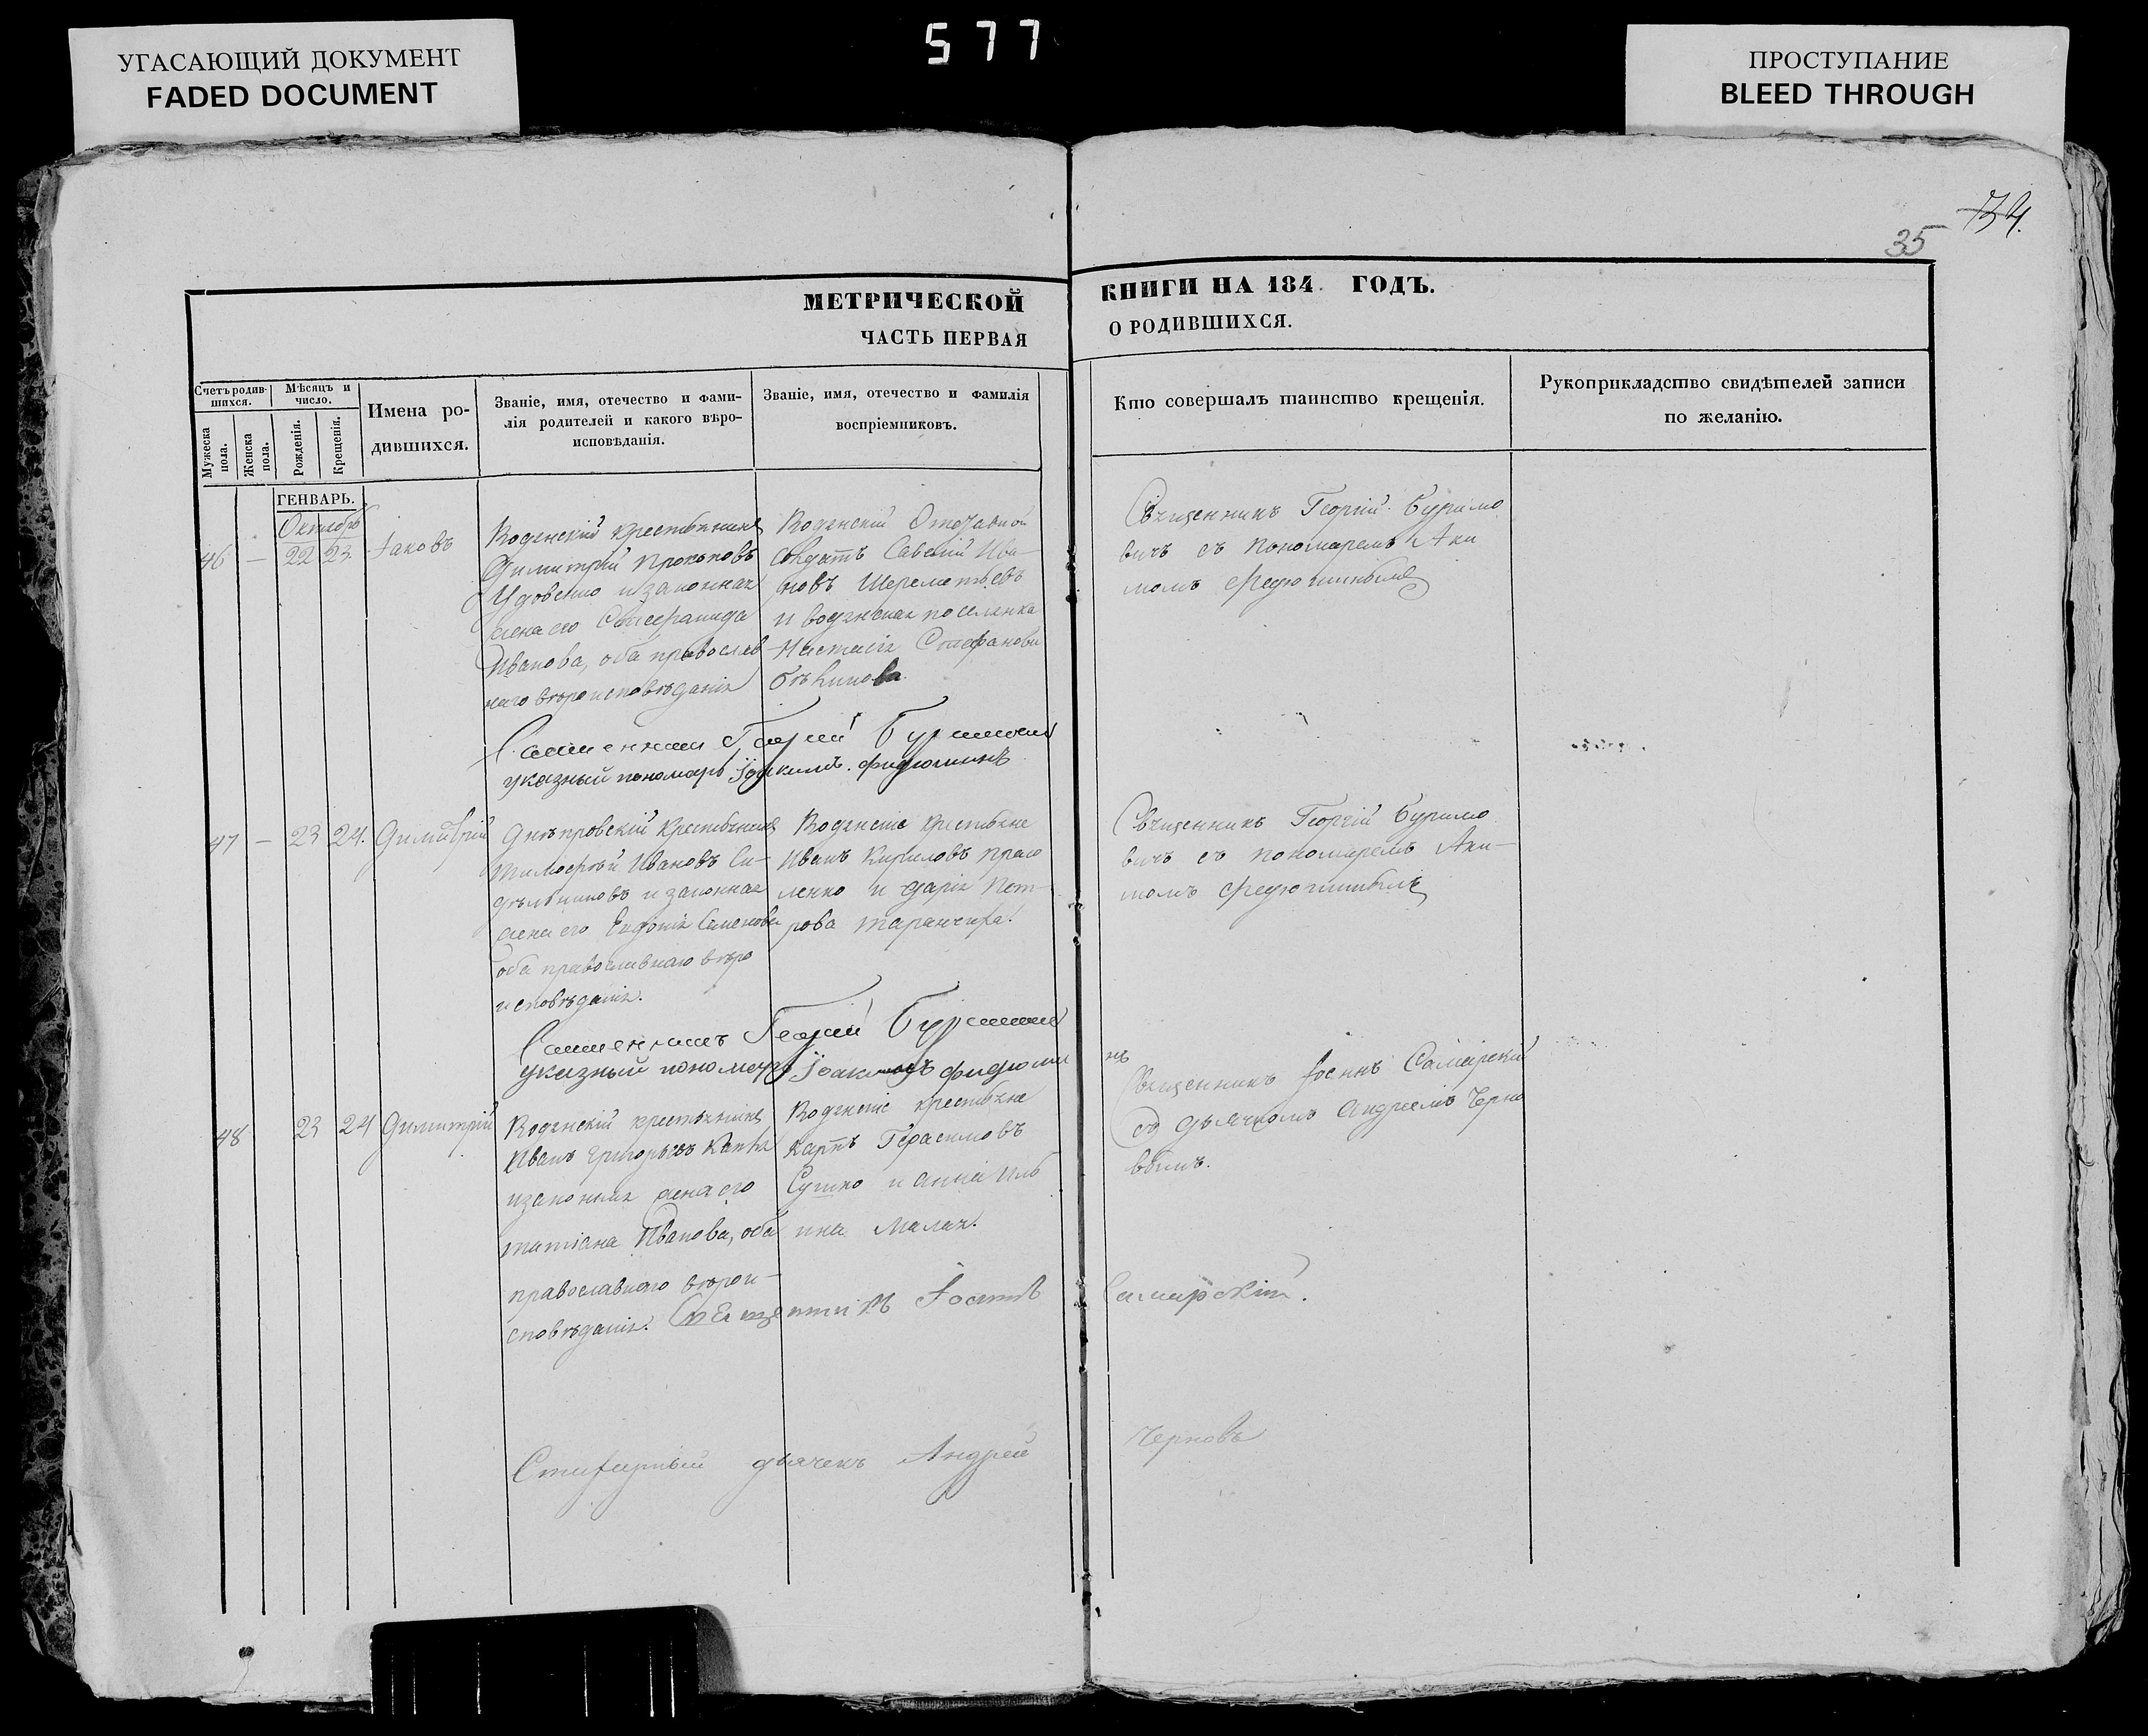 577
УГАСАЮЩИЙ ДОКУМЕНТ
FADED DOCUMENT
ПРОСТУПАНИЕ
BLEED THROUGH
34.
35
МЕТРИЧЕСКОЙ
ЧАСТЬ ПЕРВАЯ
КНИГИ НА 184 ГОДЪ.
О РОДИВШИХСЯ.
Счетъ родив-
шихся.
Мужеска пола.
Женска пола.
Мѣсяцъ и
число.
Рожденія.
Крещенія.
Имена ро-
дившихся.
Званіе, имя, отечество и фами-
лія родителей и какого вѣро-
исповѣданія.
Званіе, имя, отечество и фамилія
воспріемниковъ.
Кто совершалъ таинство крещенія.
Рукоприкладство свидѣтелей записи
по желанію.
ГЕНВАРЬ.
Октябрь
46 — 22 23 Іаковъ
Водянскій крестьянинъ
Димитрій Прокоповъ
и законная
жена его
Иванова, оба православ
наго вѣроисповѣданія
Водянскій Отставной
Солдатъ Савелій Ива-
новъ Шереметьевъ
и водянская поселянка
Настасія Стефанова
Священникъ Георгій Буримо
вичъ съ пономаремъ Аки
момъ Федюшинымъ
Священникъ Георгій
указный пономарь Іоакимъ Федюшинъ
47 — 23 24. Димитрій
Днѣпровскій Крестьянинъ
Тимофѣй Ивановъ Си-
дѣльниковъ и законная
жена его Евдокія Семенова
оба православнаго вѣро
исповѣданія.
Водянскіе крестьяне
Иванъ Кириловъ
и Дарія Пет-
рова
Священникъ Георгій Буримо
вичъ съ пономаремъ Аки-
момъ Федюшинымъ
Священникъ Георгій
указный пономарь Іоакимъ Федюши
нъ
48 23 24 Димитрій
Водянскій крестьянинъ
Иванъ Григорьевъ
и законная жена его
Татіана Иванова, оба
православнаго вѣрои-
сповѣданія.
Водянскіе крестьяне
Карпъ Герасимовъ
Сушко и Анна Иль
ина Малая.
Священникъ Іоаннъ Самарскій
съ дьячкомъ Андреемъ Черно
вымъ.
Священникъ Іоаннъ Самарскій.
дьячекъ Андрей Черновъ